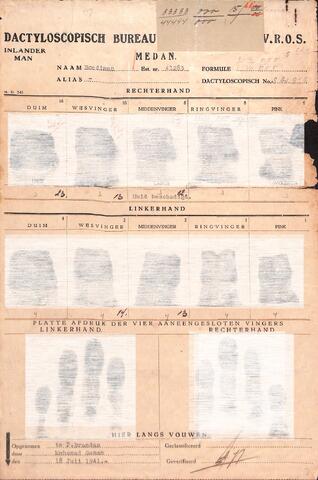 33333 000 15
44444 000 20
DACTYLOSCOPISCH BUREAU V.R.O.S.
INLANDER
MAN
MEDAN.
NAAM Est. nr. 41263 FORMULE
ALIAS - DACTYLOSCOPISCH No.
RECHTERHAND
DUIM WIJSVINGER MIDDENVINGER RINGVINGER PINK
Huid beschadigd.
LINKERHAND
DUIM WIJSVINGER MIDDENVINGER RINGVINGER PINK
PLATTE AFDRUK DER VIER AANEENGESLOTEN VINGERS
LINKERHAND. RECHTERHAND
HIER LANGS VOUWEN.
Opgenomen te P.Brandan Geclassificeerd
door Mohamad Geverifieerd
den 18 Juli 1941.-